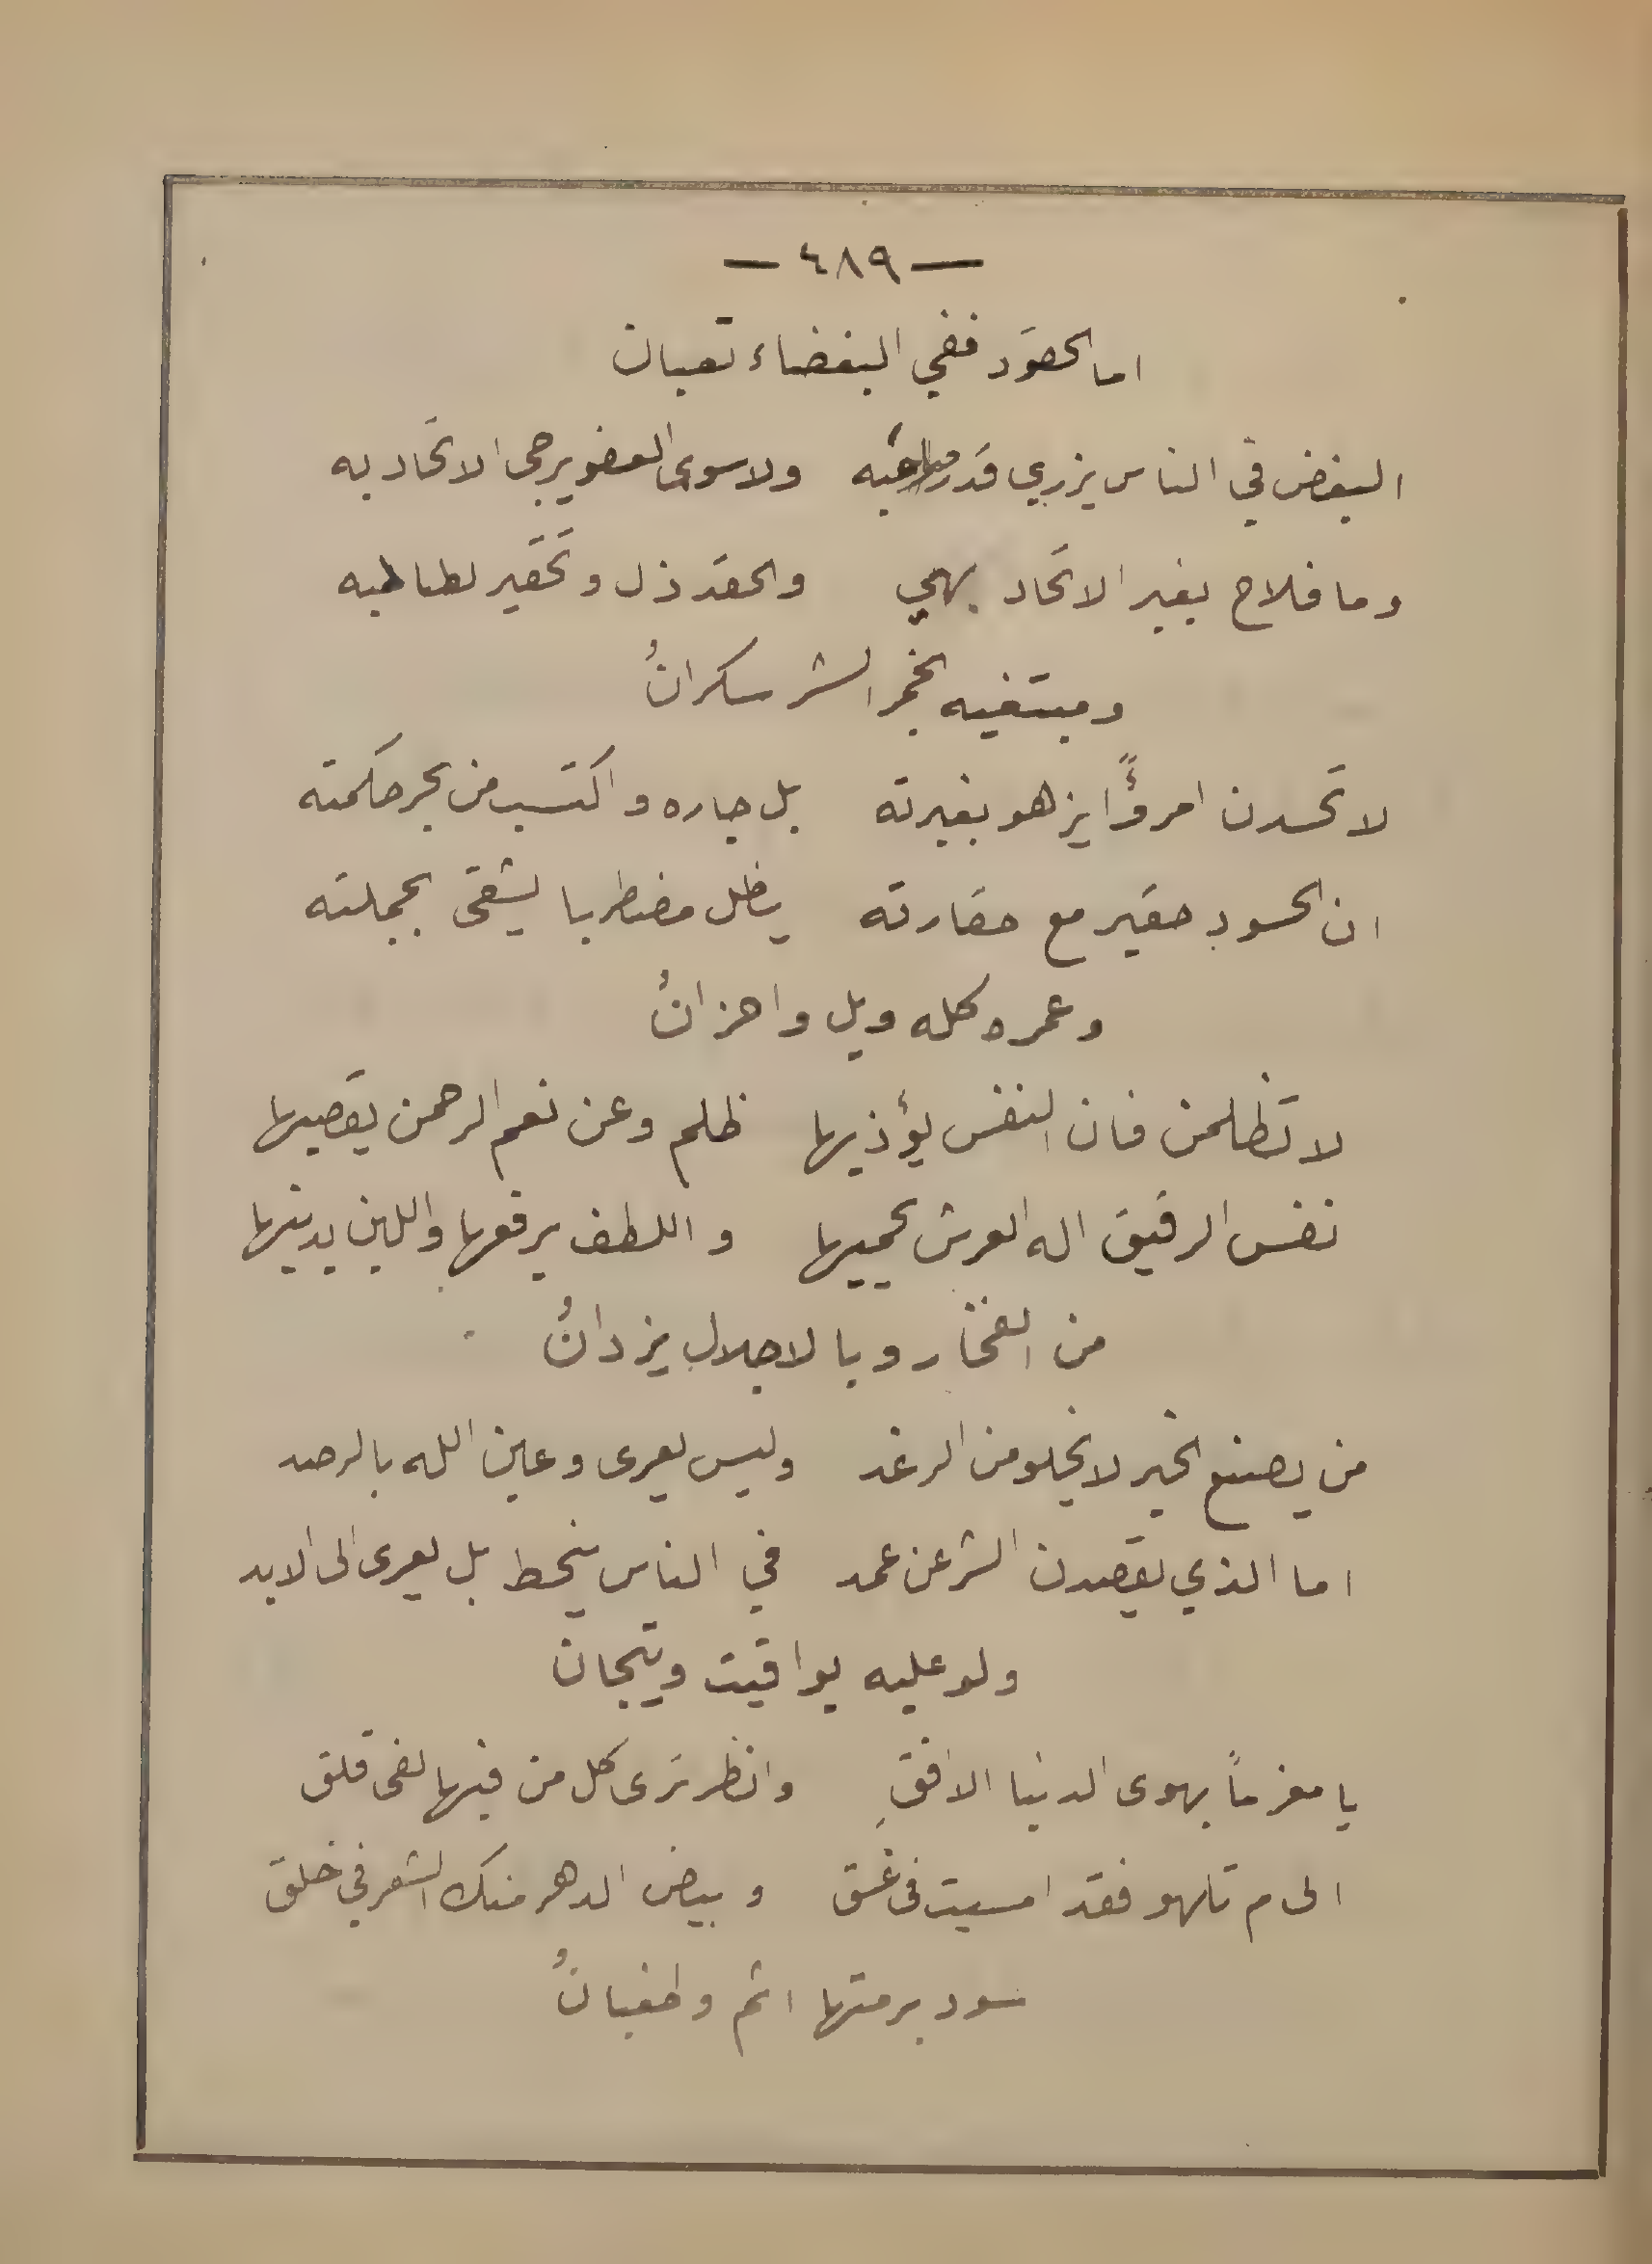 — ٤٨٩ —
اما الحقود ففي البغضاء تعبان
البغض في الناس يزري قدر صاحبه ولا سوى العفو يرجى الاتحاد به
وما فلاح بغير الاتحاد بهي والحقد ذل وتحقير لطالبه
ومبتغيه بخمر الشر سكرانُ
لا تحسدن امرؤًا يزهو بغيرته بل جاره واكتسب من بحر حكمته
ان الحسود حقير مع حقارته يظل مضطربا يشقى بجملته
وعمره كله ويل واحزانُ
لا تظلمن فان النفس يؤذيها ظلم وعن نعم الرحمن يقصيها
نفس الرفيق اله العرش يحييها واللطف يرفعها واللين يدنيها
من الفخار وبالاجلال يزدانُ
من يصنع الخير لا يخلو من الرغد وليس يعرى وعين الله بالرصد
اما الذي يقصدن الشر عن عمد في الناس ينحط بل يعرى الى الابد
ولو عليه يواقيت وتيجان
يا مغرماً بهوى الدنيا الا افقِ وانظر ترى كل من فيها لفى قلق
الى م تلهو فقد امسيت فى غسق وبيض الدهر منك الشعر في خلق
سود برمتها اثم وطغيانُ